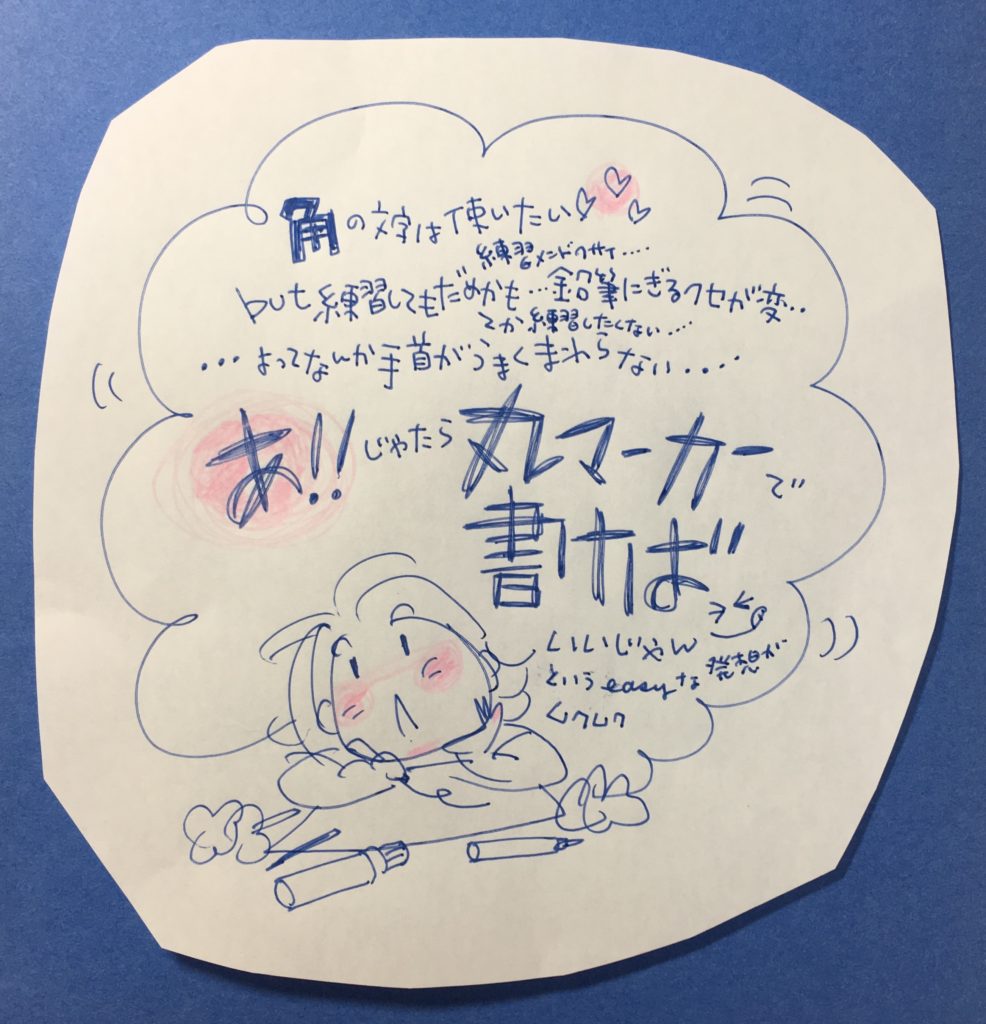 角の文字は使いたい
練習メンドクサイ....
but 練習してもだめかも…鉛筆にぎるクセが変..
てか練習したくない....
...よってなんか手首がうまくまわらない...
あ!!じゃたら丸マーカーで
書けば
いいじゃん
というeasyな発想が
ムクムク